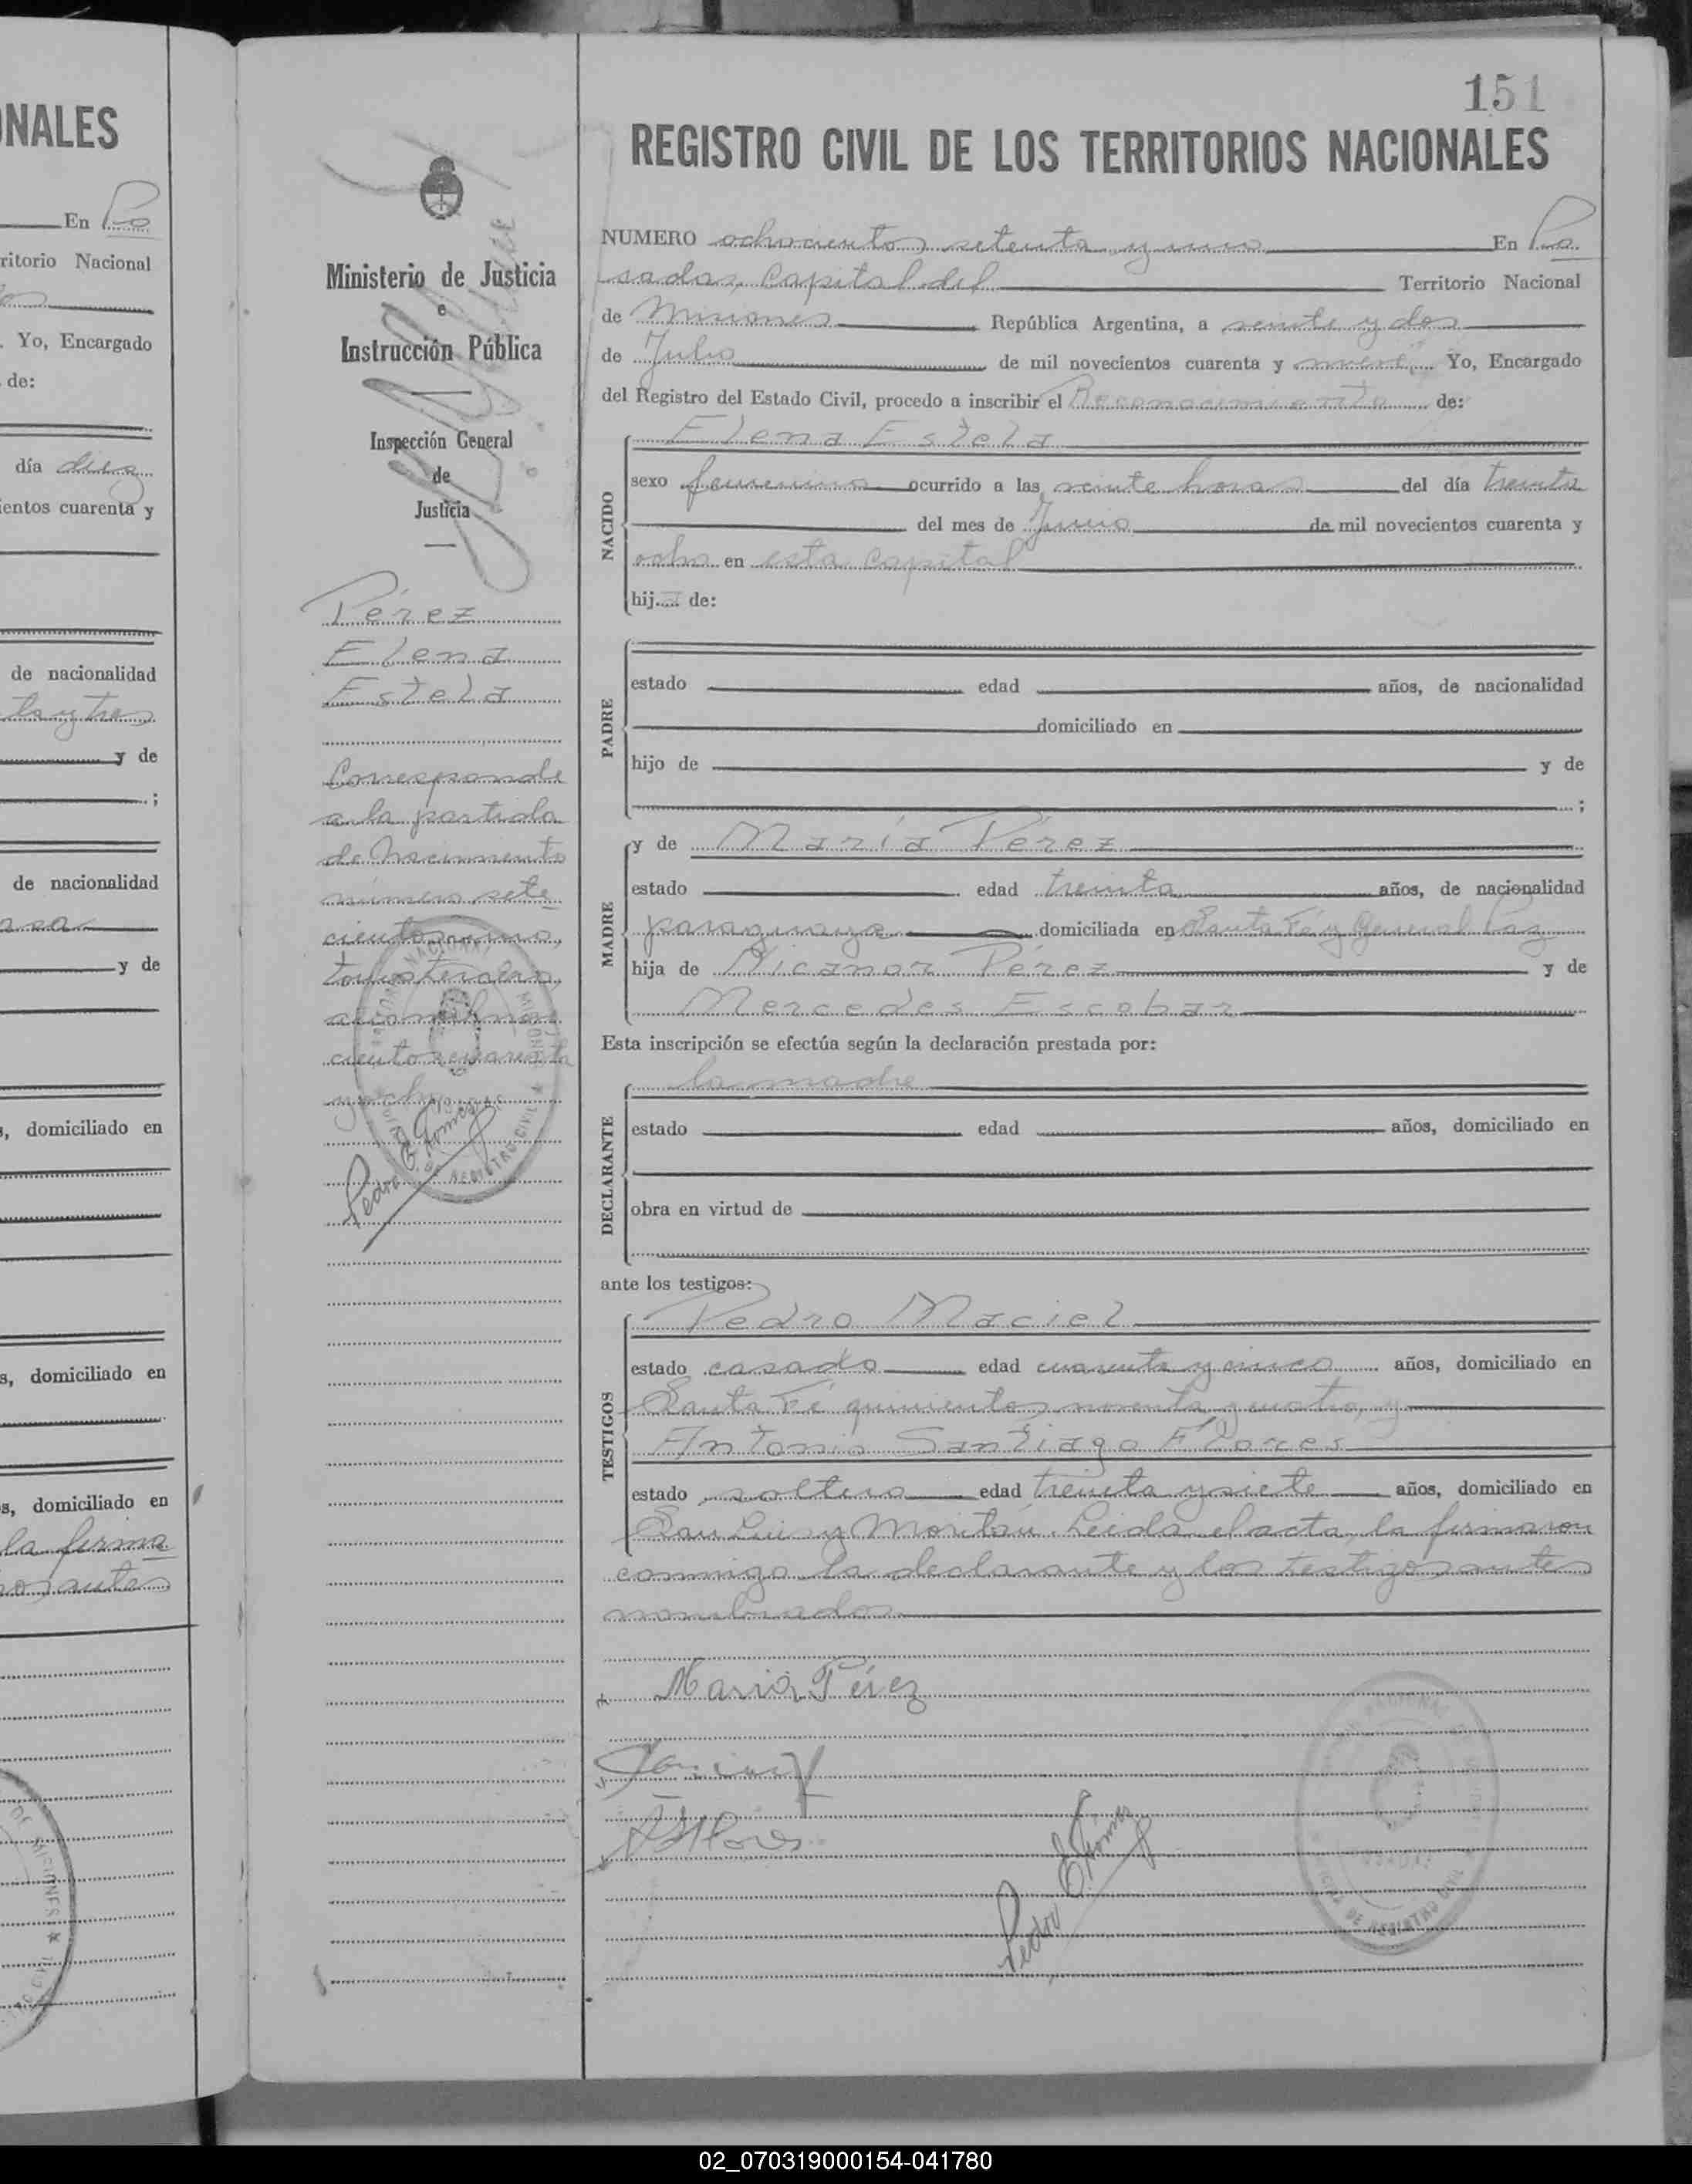 NALES
En Po
ritorio Nacional
. Yo, Encargado
de:
día diez
ientos cuarenta y
de nacionalidad
ta y tres
y de
;
de nacionalidad
y de
s, domiciliado en
s, domiciliado en
s, domiciliado en
la firma
antes
DE MISIONES
Ministerio de Justicia
e
Instrucción Pública
Inspección General
de
Justicia
Pérez
Elena
Estela
Corresponde
a la partida
de Nacimiento
número sete
cientos uno,
tomo tercero,
año mil nove
ciento cuarenta
y ocho
Pedro E Gomez
REGISTRO CIVIL
151
REGISTRO CIVIL DE LOS TERRITORIOS NACIONALES
NUMERO ochocientos setenta y uno En Po
sadas, Capital del Territorio Nacional
de Misiones República Argentina, a veinte y dos
de Julio de mil novecientos cuarenta y nueve Yo, Encargado
del Registro del Estado Civil, procedo a inscribir el Reconocimiento de:
Elena Estela
NACIDO
sexo femenino ocurrido a las veinte horas del día treinta
del mes de Junio de mil novecientos cuarenta y
ocho en esta Capital
hija de:
PADRE
estado edad años, de nacionalidad
domiciliado en
hijo de y de
;
MADRE
y de María Pérez
estado edad treinta años, de nacionalidad
paraguaya domiciliada en Santa Fé y General Paz
hija de Nicanor Pérez y de
Mercedes Escobar
Esta inscripción se efectúa según la declaración prestada por:
DECLARANTE
la madre
estado edad años, domiciliado en
obra en virtud de
ante los testigos:
TESTIGOS
Pedro Maciel
estado casado edad cuarenta y cinco años, domiciliado en
Santa Fé quinientos noventa y cuatro, y
Antonio Santiago Flores
estado soltero edad treinta y siete años, domiciliado en
San Luis y Moritán. Leída el acta, la firmaron
conmigo la declarante y los testigos antes
nombrados.
Maria Pérez
ASFlores
Pedro E Gomez
DE REGISTRO CIVIL
02_070319000154-041780